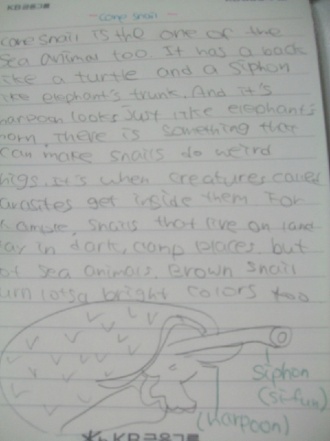 KB금융그룹
- cone snail -
cone snail is the one of the
sea animal too. It has a back
like a turtle and a siphon
like elephant's trunk. And it's
harpoon looks just like elephant's
horn. There is something that
can make snails do weird
thigs. It's when creatures called
parasites get inside them For
example, snails that live on land
stay in dark, damp places but
not sea animals. Brown snail
turn lotsa bright colors too
siphon
(si-fun)
(harpoon)
KB금융그룹